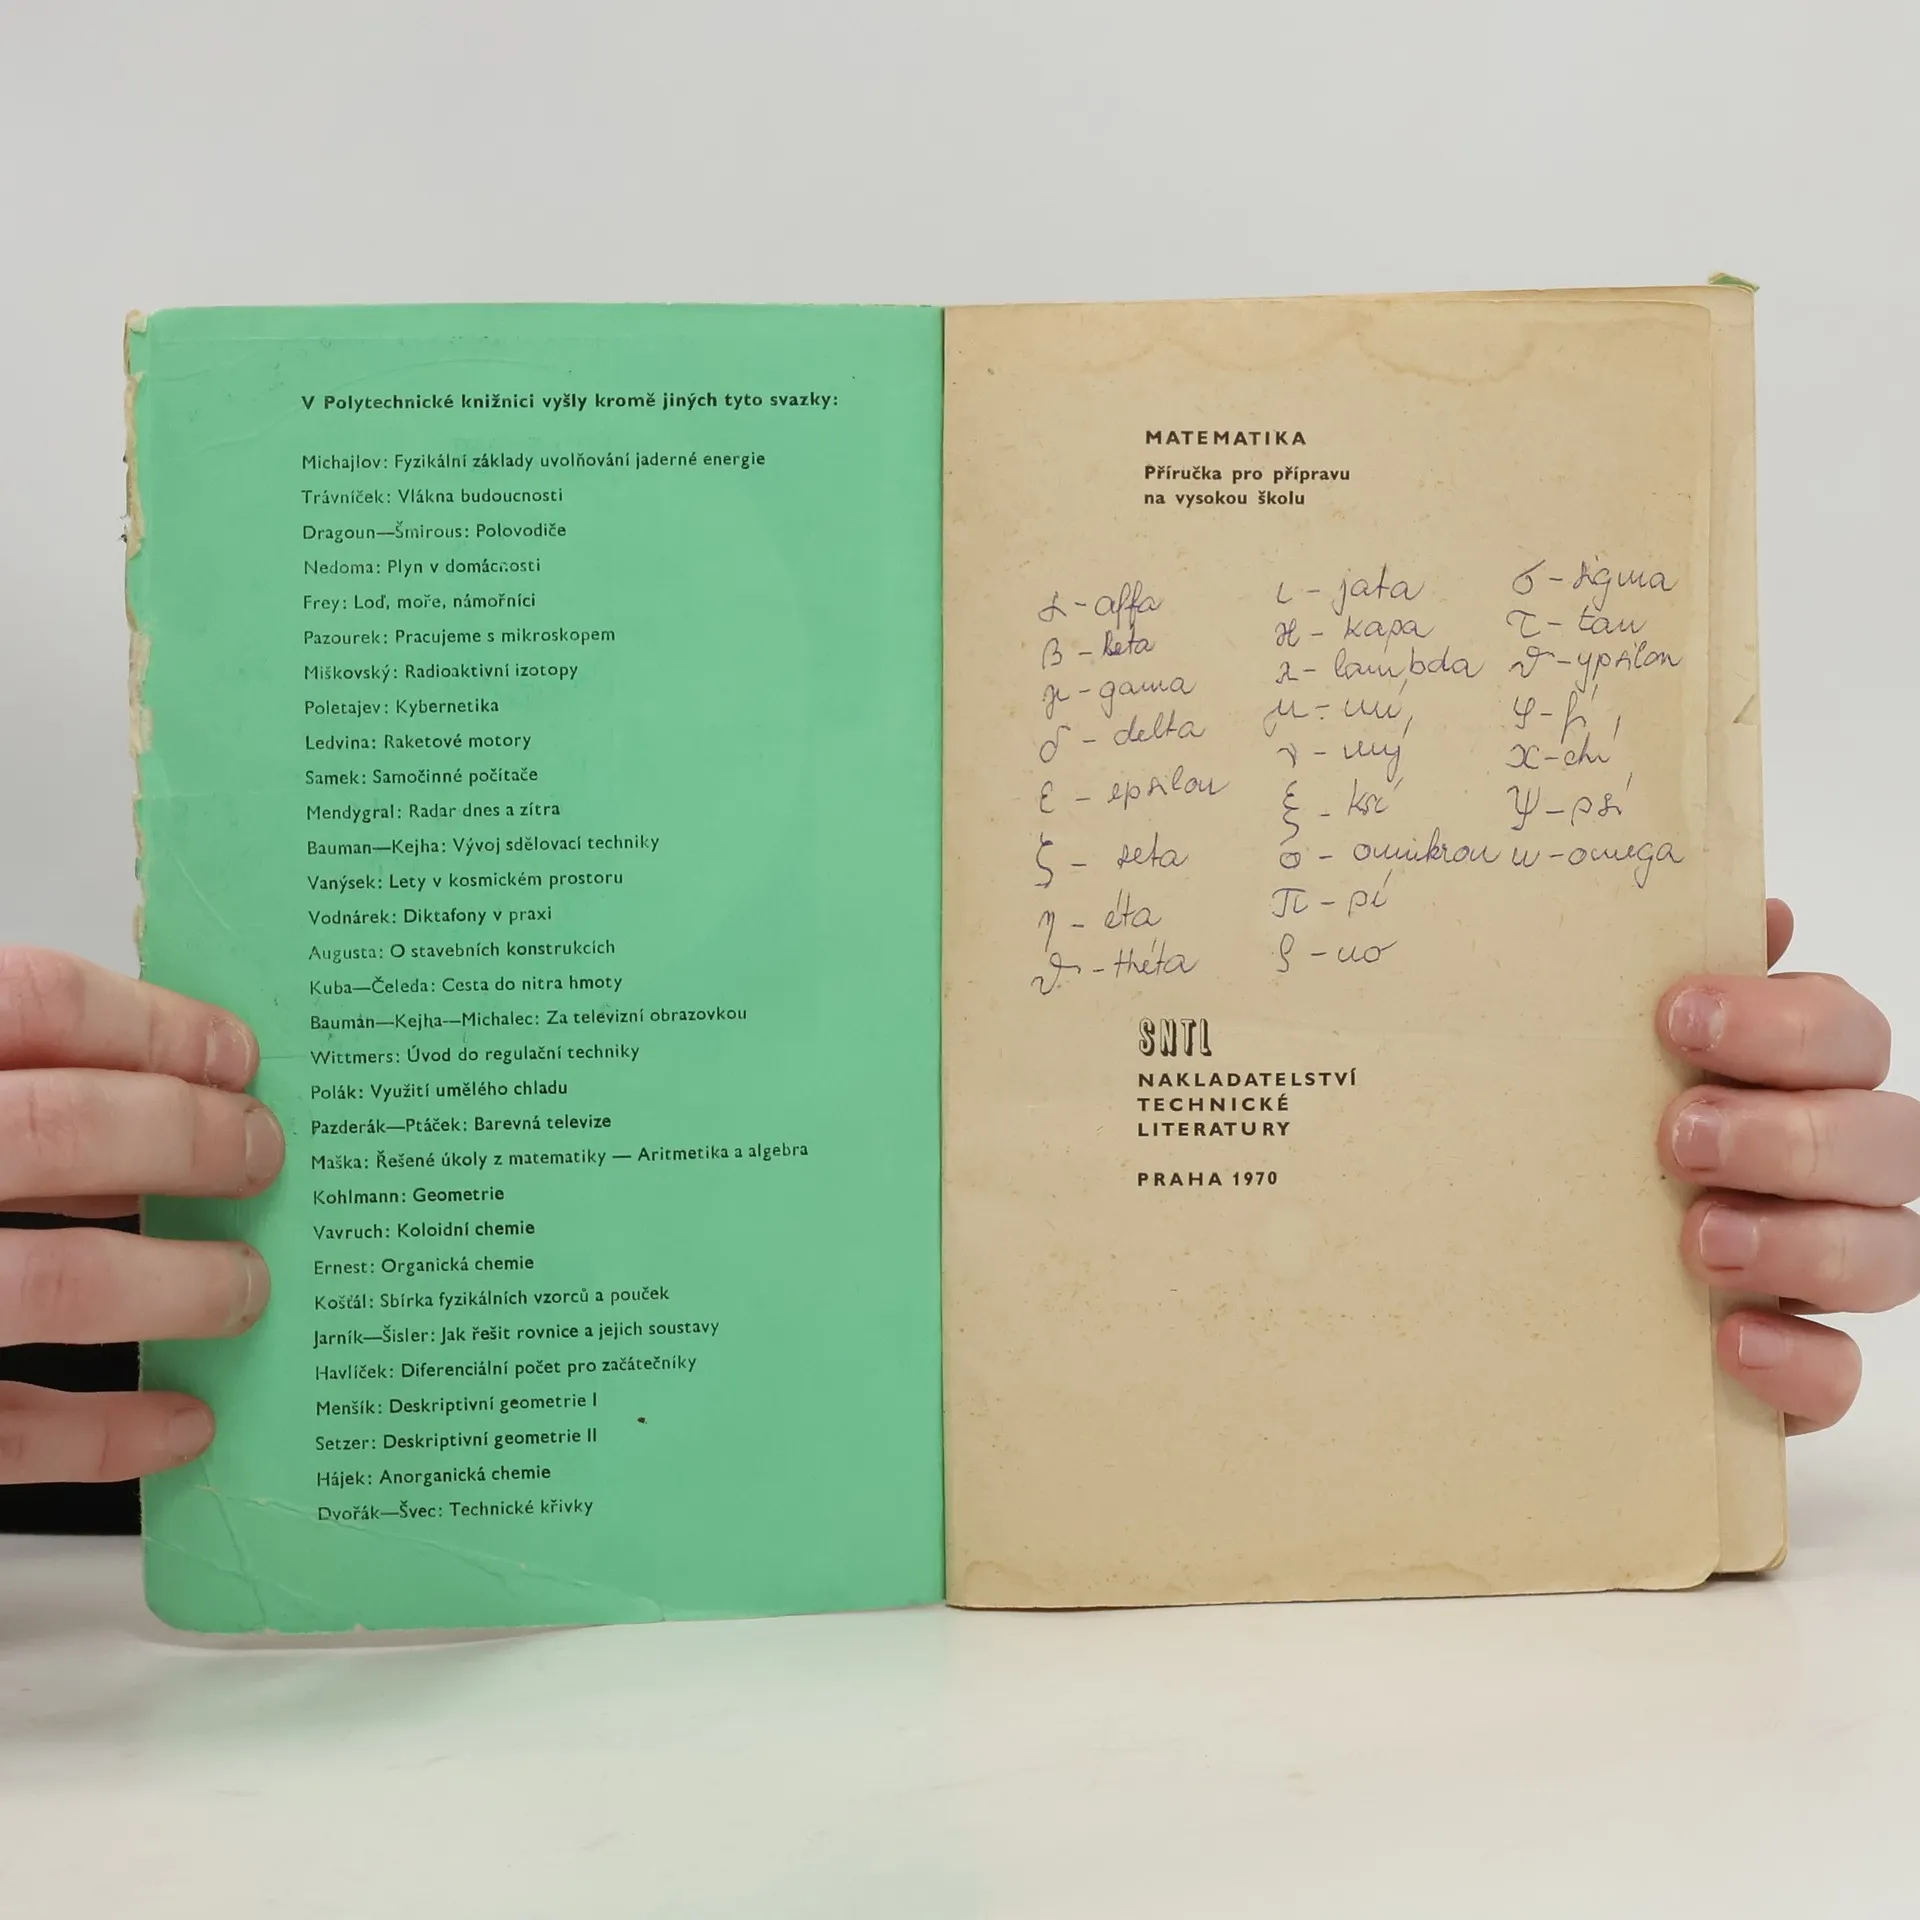 V Polytechnické knižnici vyšly kromě jiných tyto svazky:
Michajlov: Fyzikální základy uvolňování jaderné energie
Trávníček: Vlákna budoucnosti
Dragoun—Šmirous: Polovodiče
Nedoma: Plyn v domácnosti
Frey: Loď, moře, námořníci
Pazourek: Pracujeme s mikroskopem
Miškovský: Radioaktivní izotopy
Poletajev: Kybernetika
Ledvina: Raketové motory
Samek: Samočinné počítače
Mendygral: Radar dnes a zítra
Bauman—Kejha: Vývoj sdělovací techniky
Vanýsek: Lety v kosmickém prostoru
Vodnárek: Diktafony v praxi
Augusta: O stavebních konstrukcích
Kuba—Čeleda: Cesta do nitra hmoty
Bauman—Kejha—Michalec: Za televizní obrazovkou
Wittmers: Úvod do regulační techniky
Polák: Využití umělého chladu
Pazderák—Ptáček: Barevná televize
Maška: Řešené úkoly z matematiky — Aritmetika a algebra
Kohlmann: Geometrie
Vavruch: Koloidní chemie
Ernest: Organická chemie
Košťál: Sbírka fyzikálních vzorců a pouček
Jarník—Šisler: Jak řešit rovnice a jejich soustavy
Havlíček: Diferenciální počet pro začátečníky
Menšík: Deskriptivní geometrie I
Setzer: Deskriptivní geometrie II
Hájek: Anorganická chemie
Dvořák—Švec: Technické křivky
MATEMATIKA
Příručka pro přípravu
na vysokou školu
α - alfa
β - beta
γ - gama
δ - delta
ε - epsilon
ζ - seta
η - éta
ϑ - théta
ι - jata
ϰ - kapa
λ - lambda
μ - mí
ν - ný
ξ - ksí
o - omikron
π - pí
ρ - ro
σ - sigma
τ - tau
υ - ypsilon
φ - fí
χ - chí
ψ - psí
ω - omega
SNTL
NAKLADATELSTVÍ
TECHNICKÉ
LITERATURY
PRAHA 1970